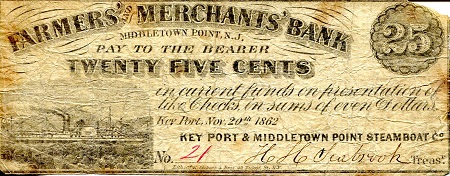 FARMERS' AND MERCHANTS' BANK
MIDDLETOWN POINT, N.J.
25
PAY TO THE BEARER
TWENTY FIVE CENTS
in current funds on presentation of
like Checks in sums of even Dollars.
Key Port, Nov. 20th 1862
KEY PORT & MIDDLETOWN POINT STEAMBOAT Co
No. 21
H. H. Seabrook Treasr.